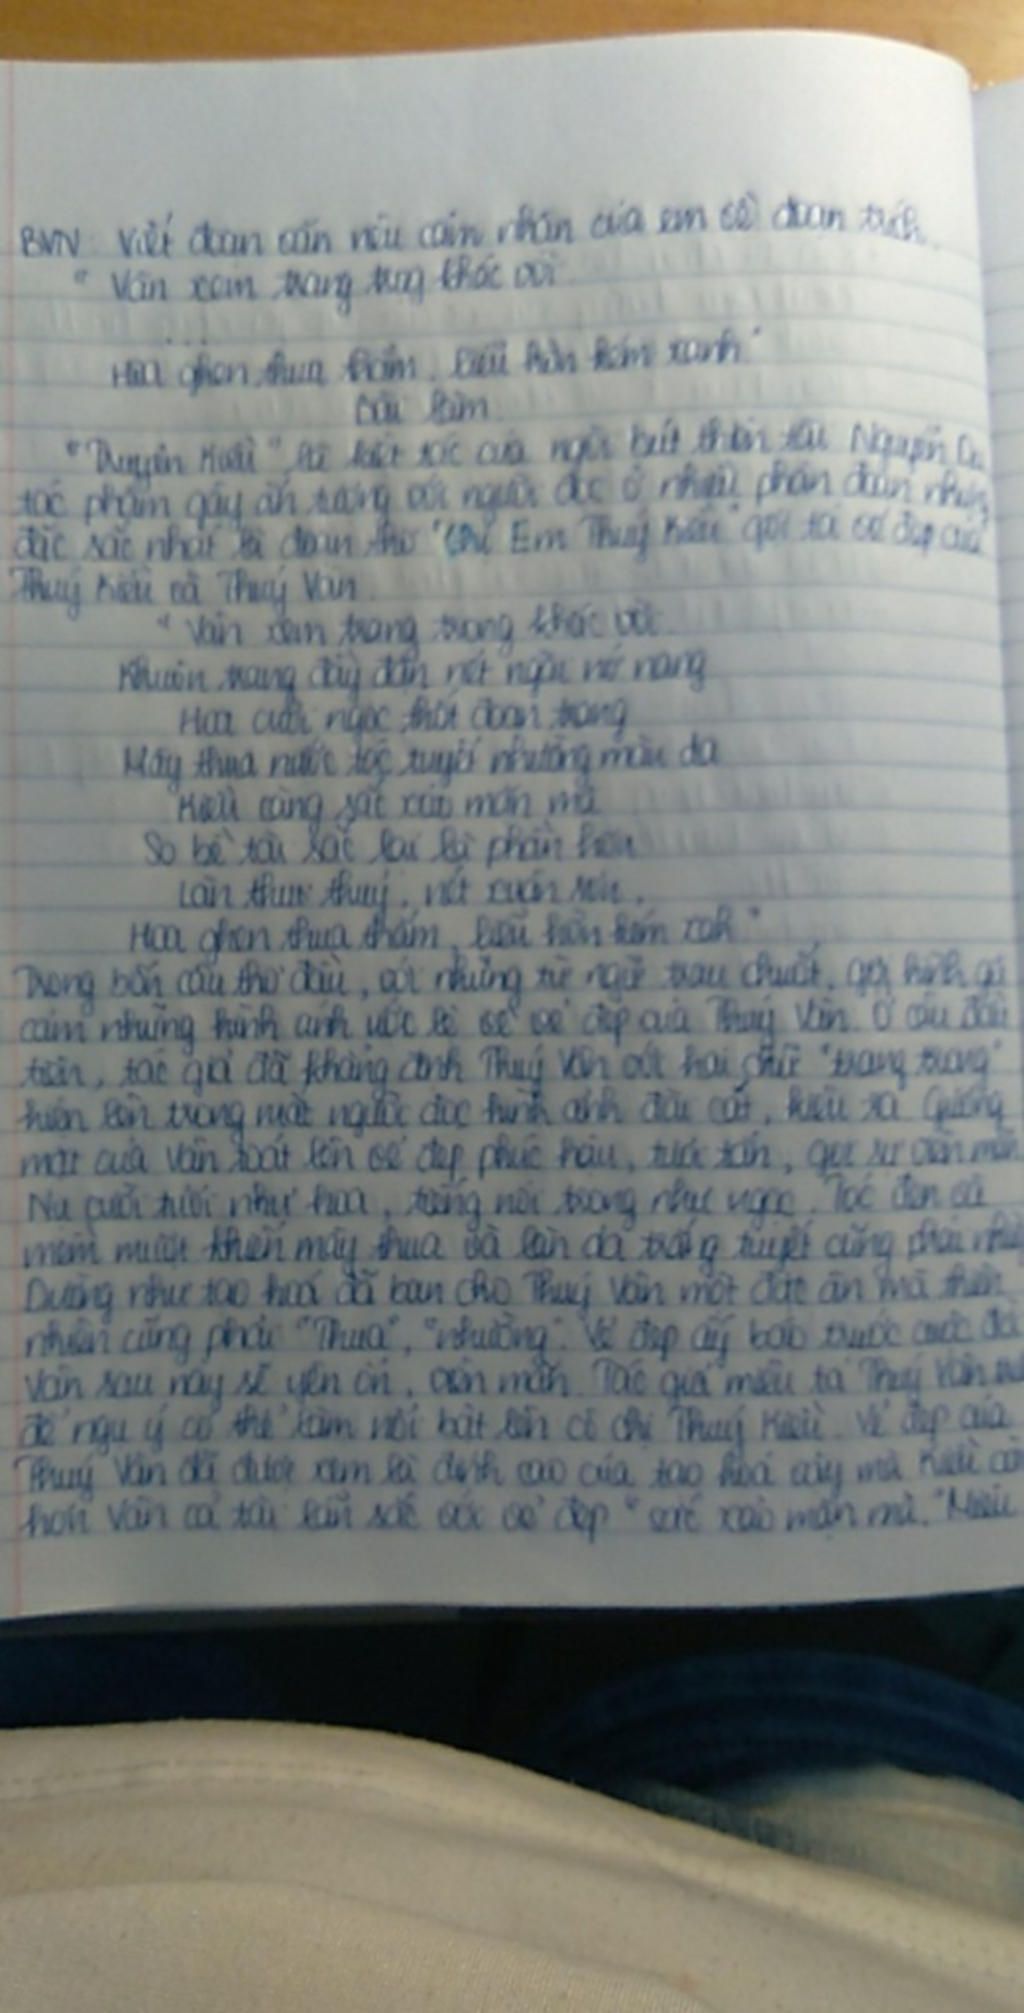 BVN: Viết đoạn văn nêu cảm nhận của em về đoạn trích.
"Vân xem trang trọng khác vời
...
Hoa ghen thua thắm, liễu hờn kém xanh"
Bài làm
"Truyện Kiều" là kiệt tác của ngòi bút thiên tài Nguyễn Du
tác phẩm gây ấn tượng với người đọc ở nhiều phân đoạn nhưng
đặc sắc nhất là đoạn thơ "Chị Em Thuý Kiều" gợi tả vẻ đẹp của
Thuý Kiều và Thuý Vân.
"Vân xem trang trọng khác vời
Khuôn trang đầy đặn nét ngài nở nang
Hoa cười ngọc thốt đoan trang
Mây thua nước tóc tuyết nhường màu da
Kiều càng sắc xảo mặn mà
So bề tài sắc lại là phần hơn
Làn thu thuỷ, nét xuân sơn,
Hoa ghen thua thắm, liễu hờn kém xah"
Trong bốn câu thơ đầu, với những từ ngữ trau chuốt, gợi hình gợi
cảm những hình ảnh ước lệ về vẻ đẹp của Thuý Vân. Ở câu đầu
tiên, tác giả đã khẳng định Thuý Vân với hai chữ "trang trọng"
hiện lên trong mắt người đọc hình ảnh đài cát, kiêu xa. Gương
mặt của Vân toát lên vẻ đẹp phúc hậu, tươi tắn, gợi sự viên mãn
Nụ cười tươi như hoa, tiếng nói trong như ngọc. Tóc đen và
mềm mượt khiến mây thua và làn da trắng tuyết cũng phải nhường
Dường như tạo hoá đã ban cho Thuý Vân một đặc ân mà thiên
nhiên cũng phải "Thua", "nhường". Vẻ đẹp ấy báo trước cuộc đời
Vân sau này sẽ yên ổn, viên mãn. Tác giả miêu tả Thuý Vân
để ngụ ý có thể làm nổi bật lên cô chị Thuý Kiều. Vẻ đẹp của
Thuý Vân đã được xem là đỉnh cao của tạo hoá vậy mà Kiều còn
hơn Vân cả tài lẫn sắc với vẻ đẹp "sắc xảo mặn mà."